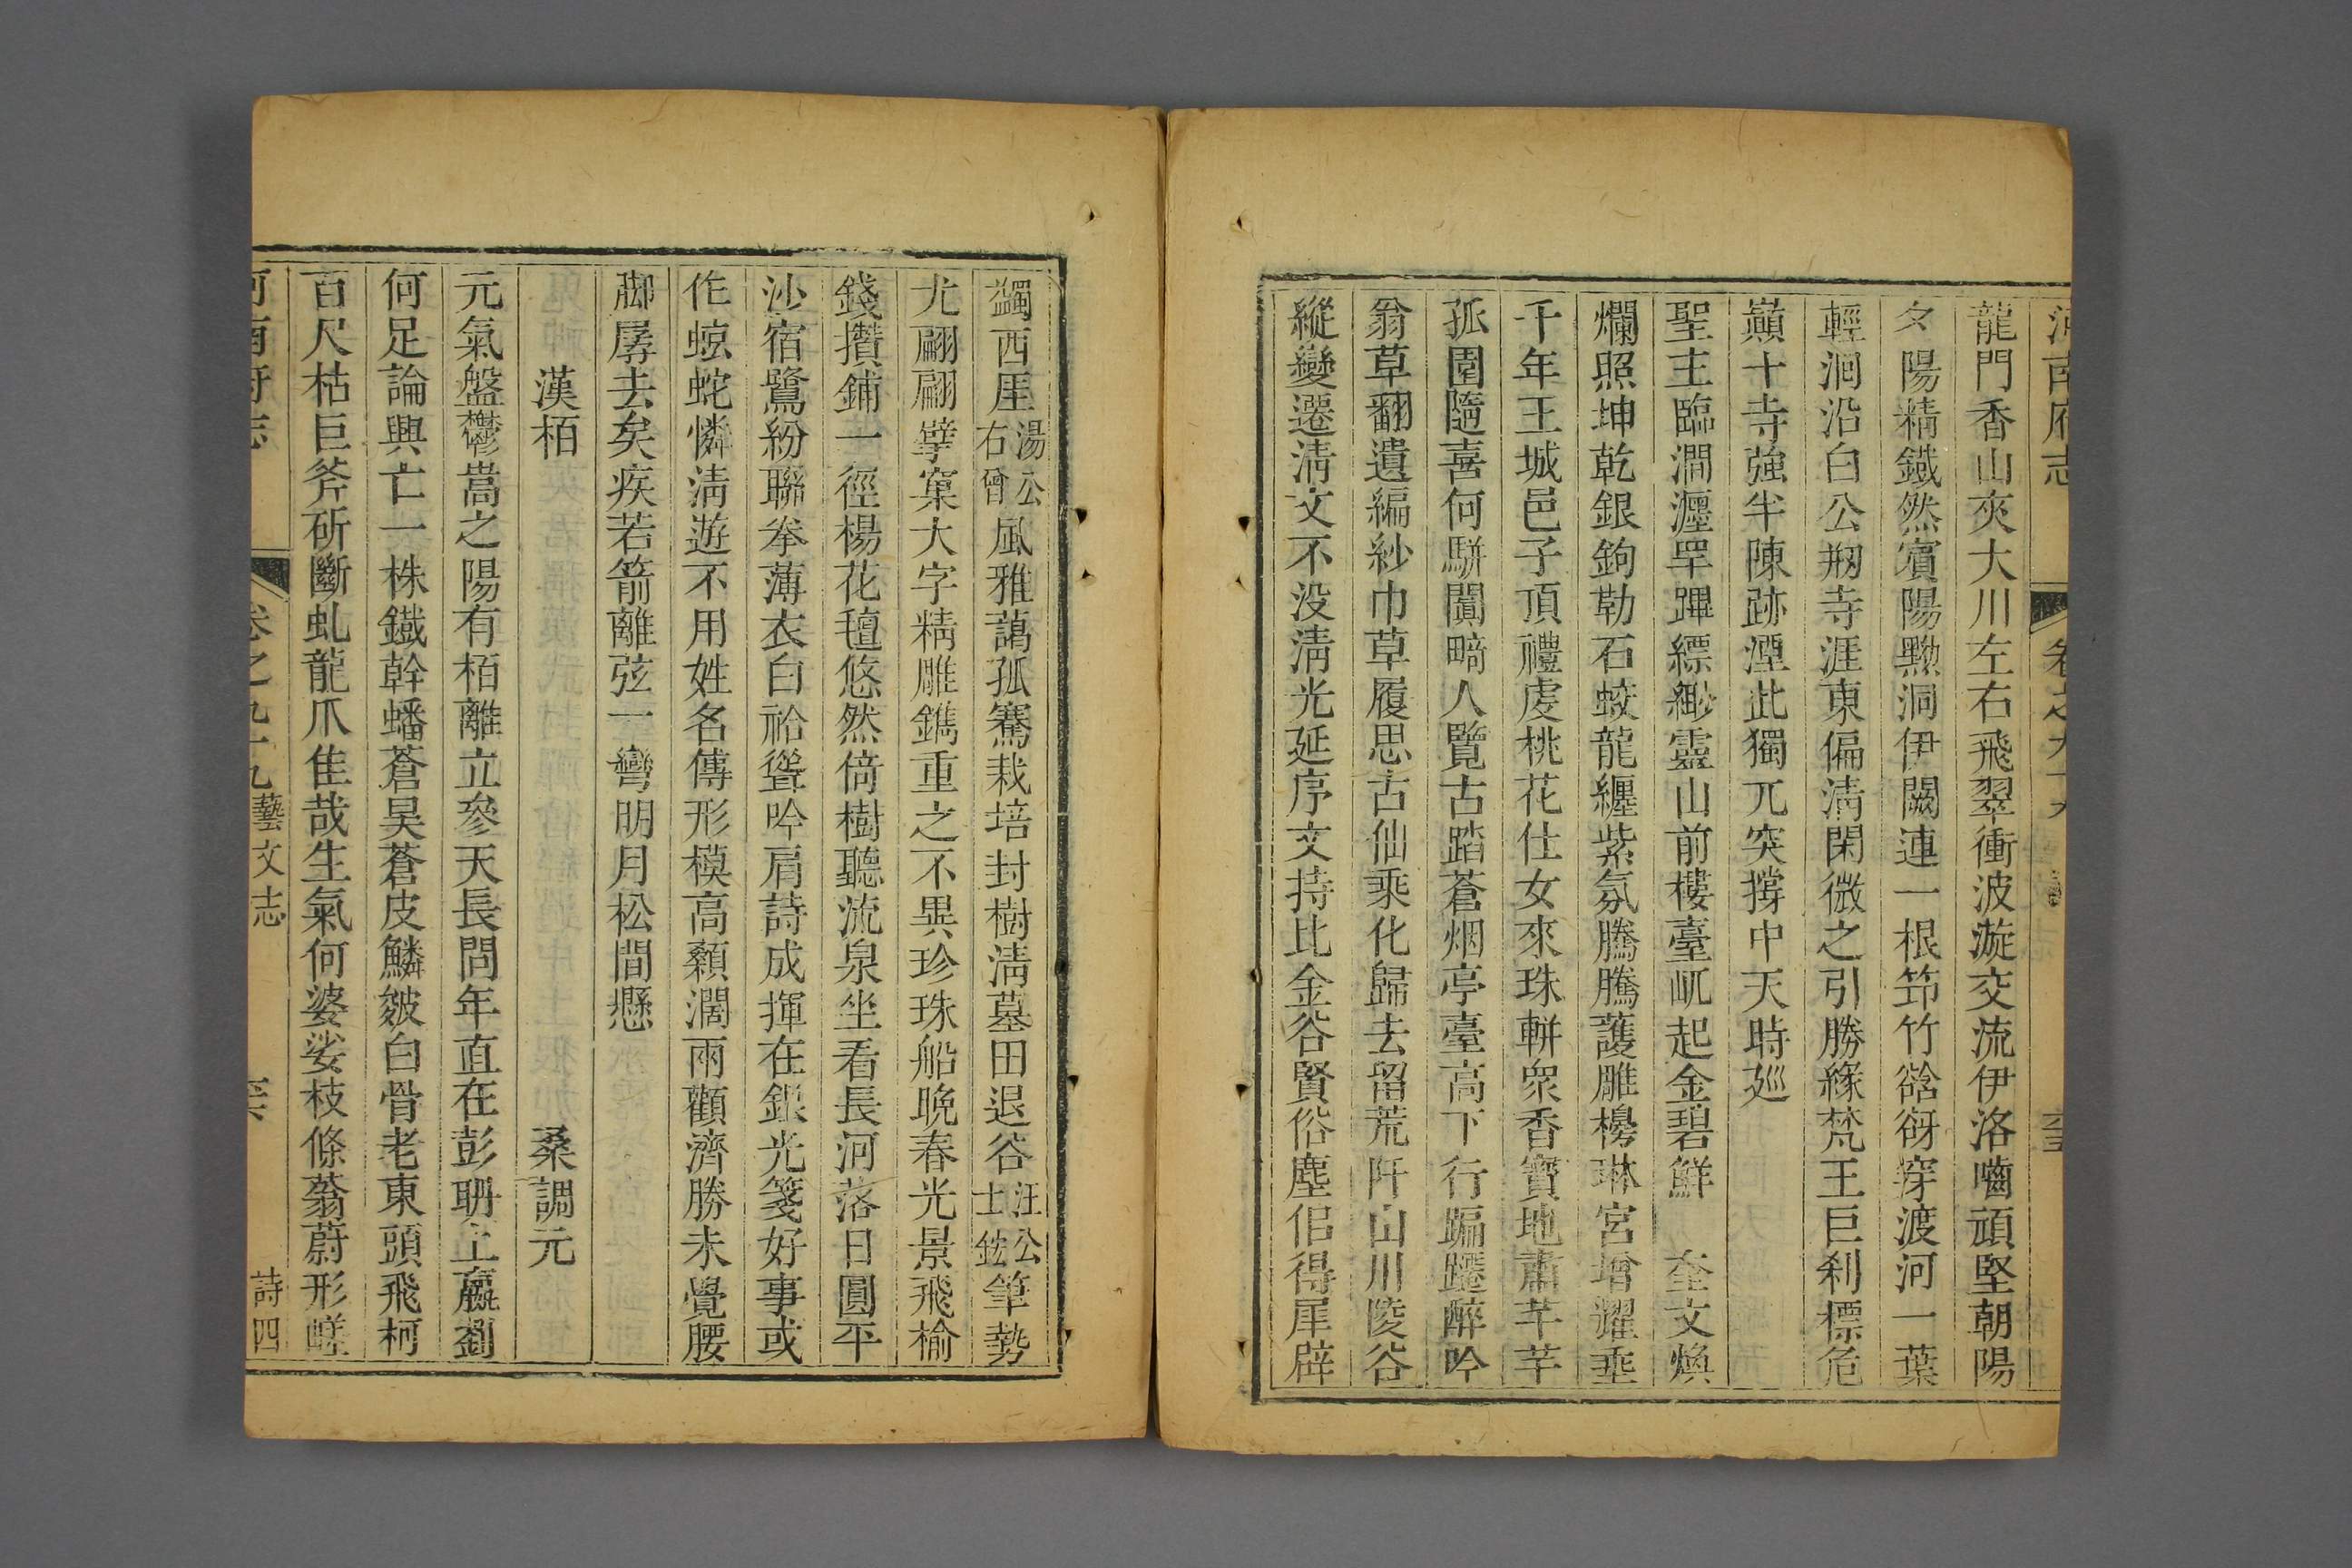 河南府志 卷之九十九
龍門香山夾大川左右飛翠衝波漩交流伊洛嚙頑堅朝陽
夕陽精鐵然賓陽黝洞伊闕連一根筇竹谽谺穿渡河一葉
輕洄沿白公剏寺涯東偏淸閑微之引勝緣梵王巨刹標危
巔十寺強半陳跡湮此獨兀突撐中天時廵
聖主臨澗瀍罕蹕縹緲靈山前樓臺屼起金碧鮮 奎文煥
爛照坤乾銀鉤勒石蛟龍纏紫氛騰騰護雕櫋琳宮增耀垂
千年王城邑子頂禮虔桃花仕女來珠軿衆香寶地肅芊芊
孤園隨喜何駢闐畸人覽古踏蒼烟亭臺高下行蹁躚醉吟
翁草翻遺編紗巾草履思古仙乘化歸去留荒阡山川陵谷
縱變遷淸文不没淸光延序文持比金谷賢俗塵佀得犀辟
蠲西厓湯公右曾風雅藹孤騫栽培封樹淸墓田退谷汪公士鋐筆勢
尤翩翩擘窠大字精雕鐫重之不異珍珠船晩春光景飛榆
錢攢鋪一徑楊花氊悠然倚樹聽流泉坐看長河落日圓平
沙宿鷺紛聯拳薄衣白袷聳吟肩詩成揮在銀光箋好事或
作蚿蛇憐淸遊不用姓名傳形模高顙濶兩顴濟勝未覺腰
脚孱去矣疾若箭離弦一彎明月松間懸
漢栢 桑調元
元氣盤鬱嵩之陽有栢離立參天長問年直在彭聃上嬴劉
何足論興亡一株鐵幹蟠蒼昊蒼皮鱗皴白骨老東頭飛柯
百尺枯巨斧斫斷虬龍爪佳哉生氣何婆娑枝條蓊蔚形嵯
河南府志 卷之九十九 藝文志 詩四